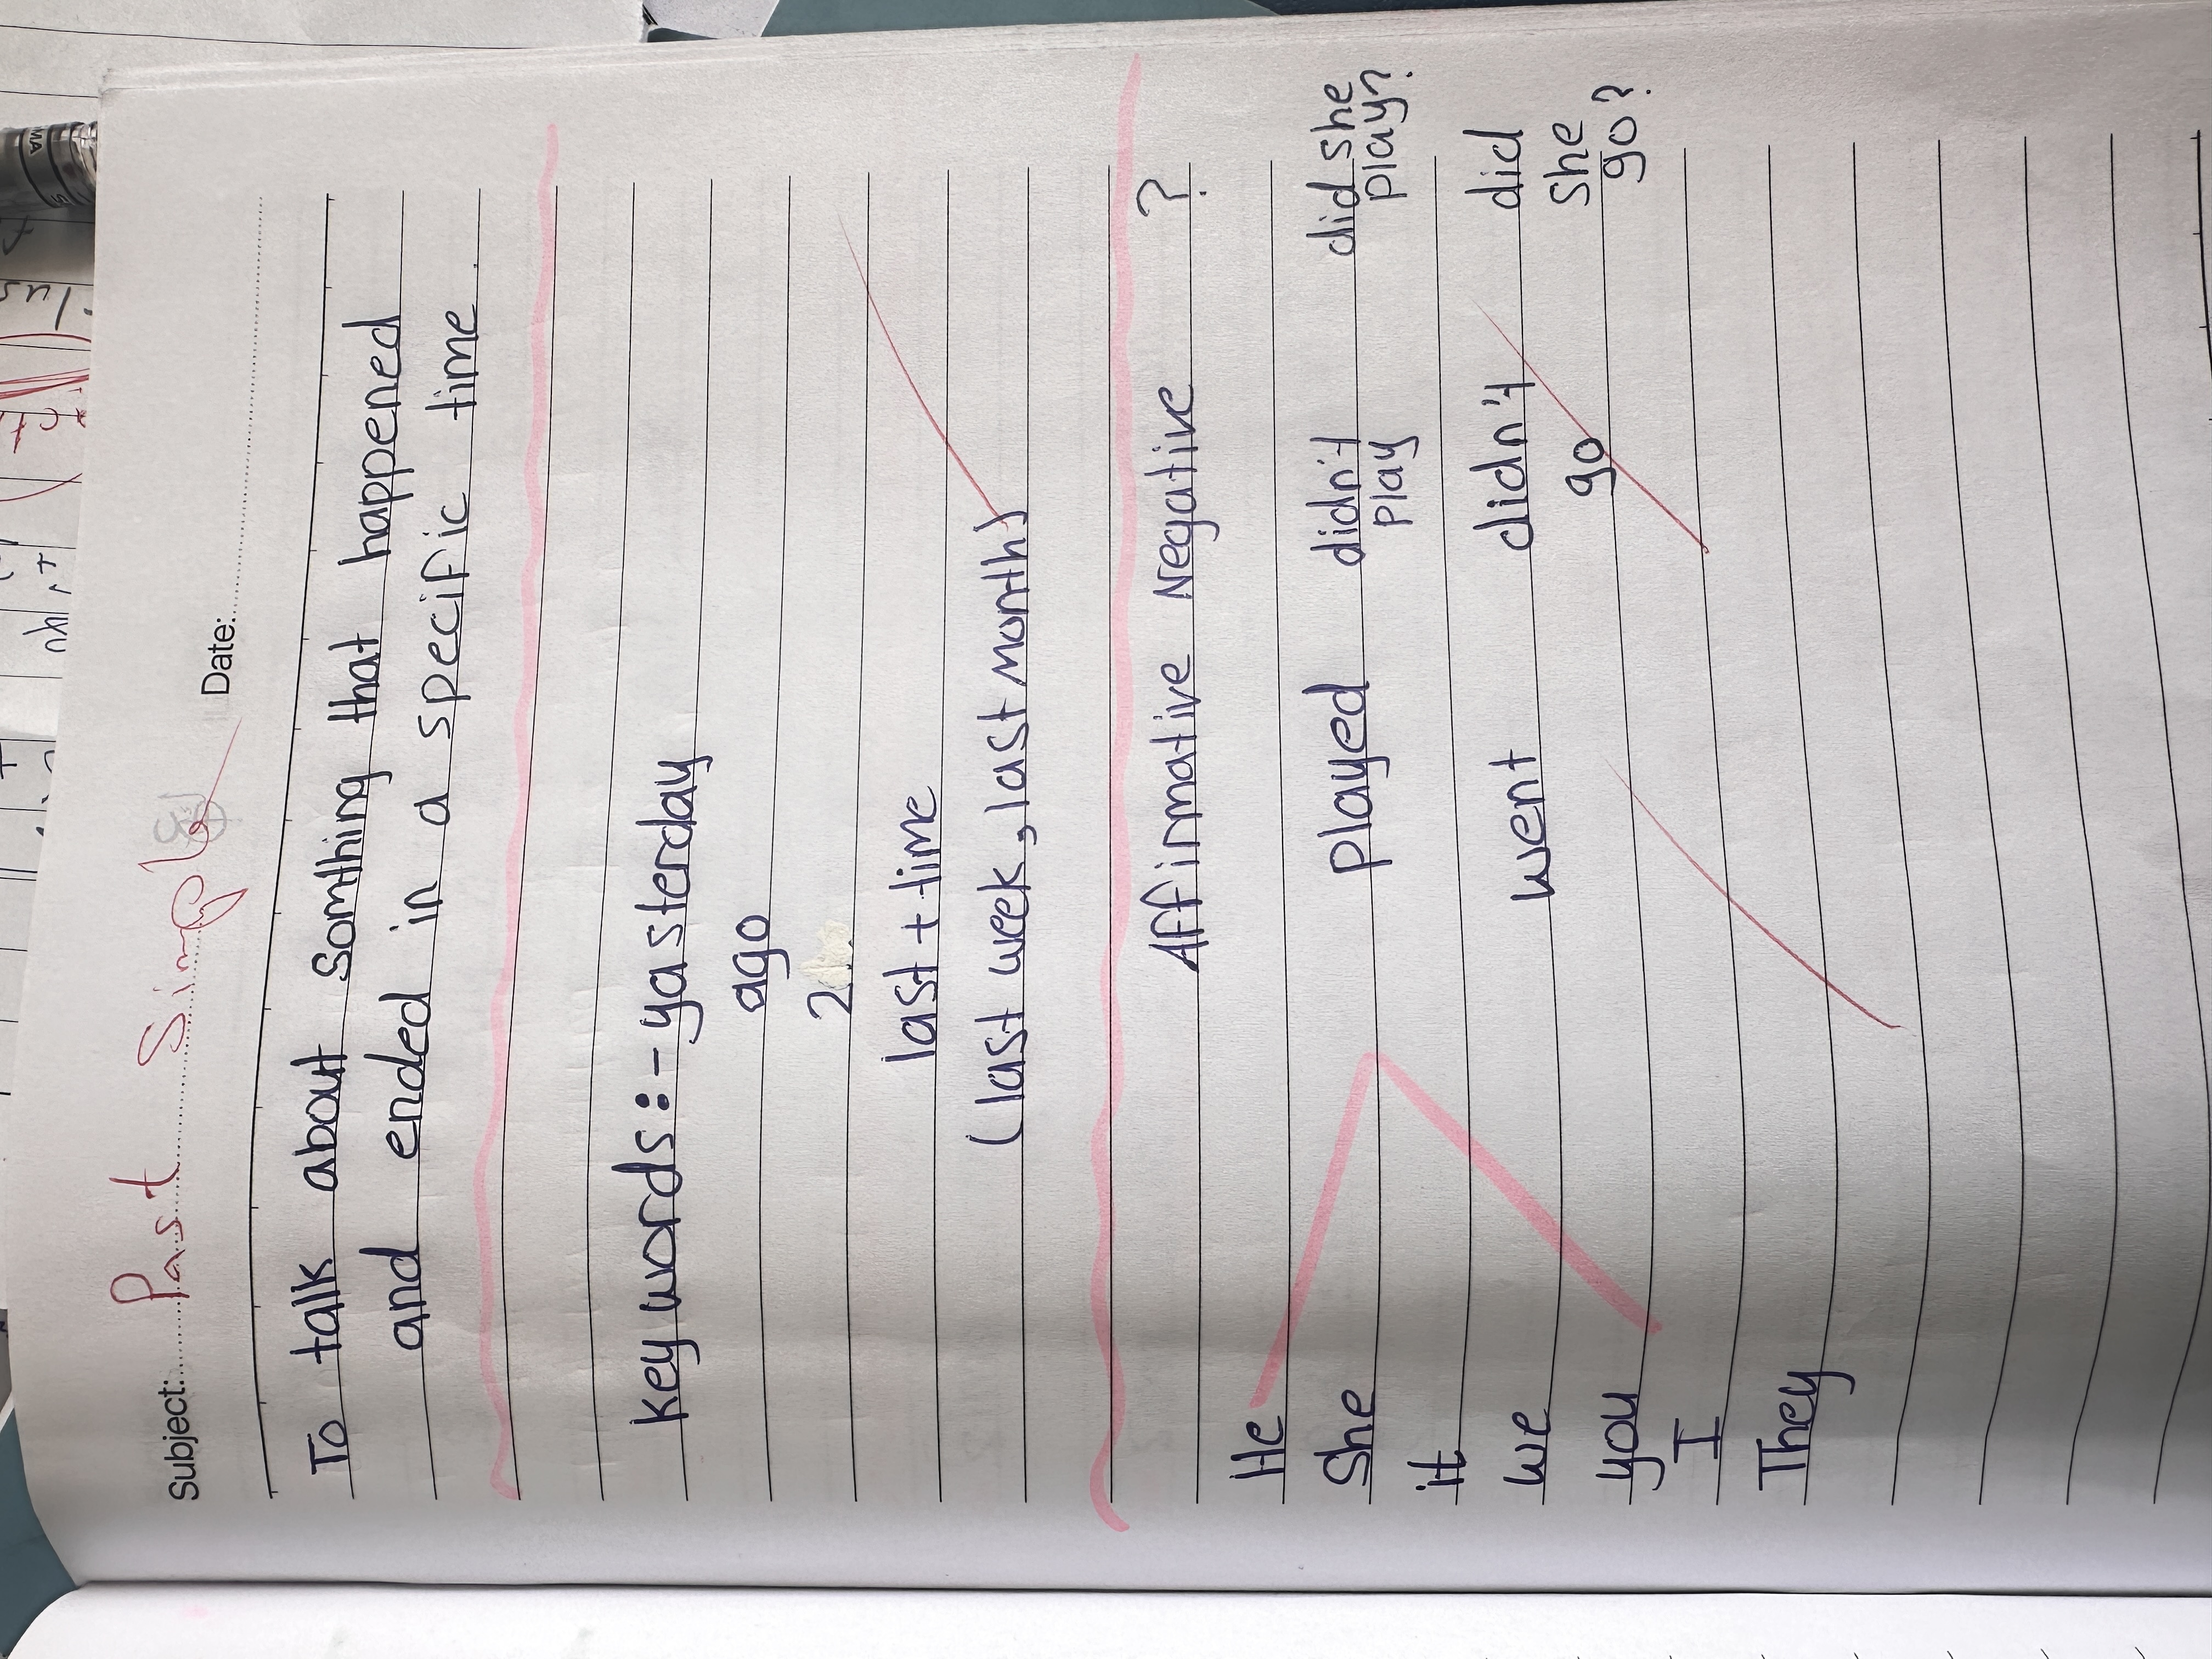 Subject: Past Simple
Date:
To talk about Somthing that happened
and ended in a specific time.
key words:- yasterday
ago
2
last + time
(last week, last month)
Affirmative Negative ?
He
She played didn't play did she play?
it
we went didn't go did she go?
you
I
They